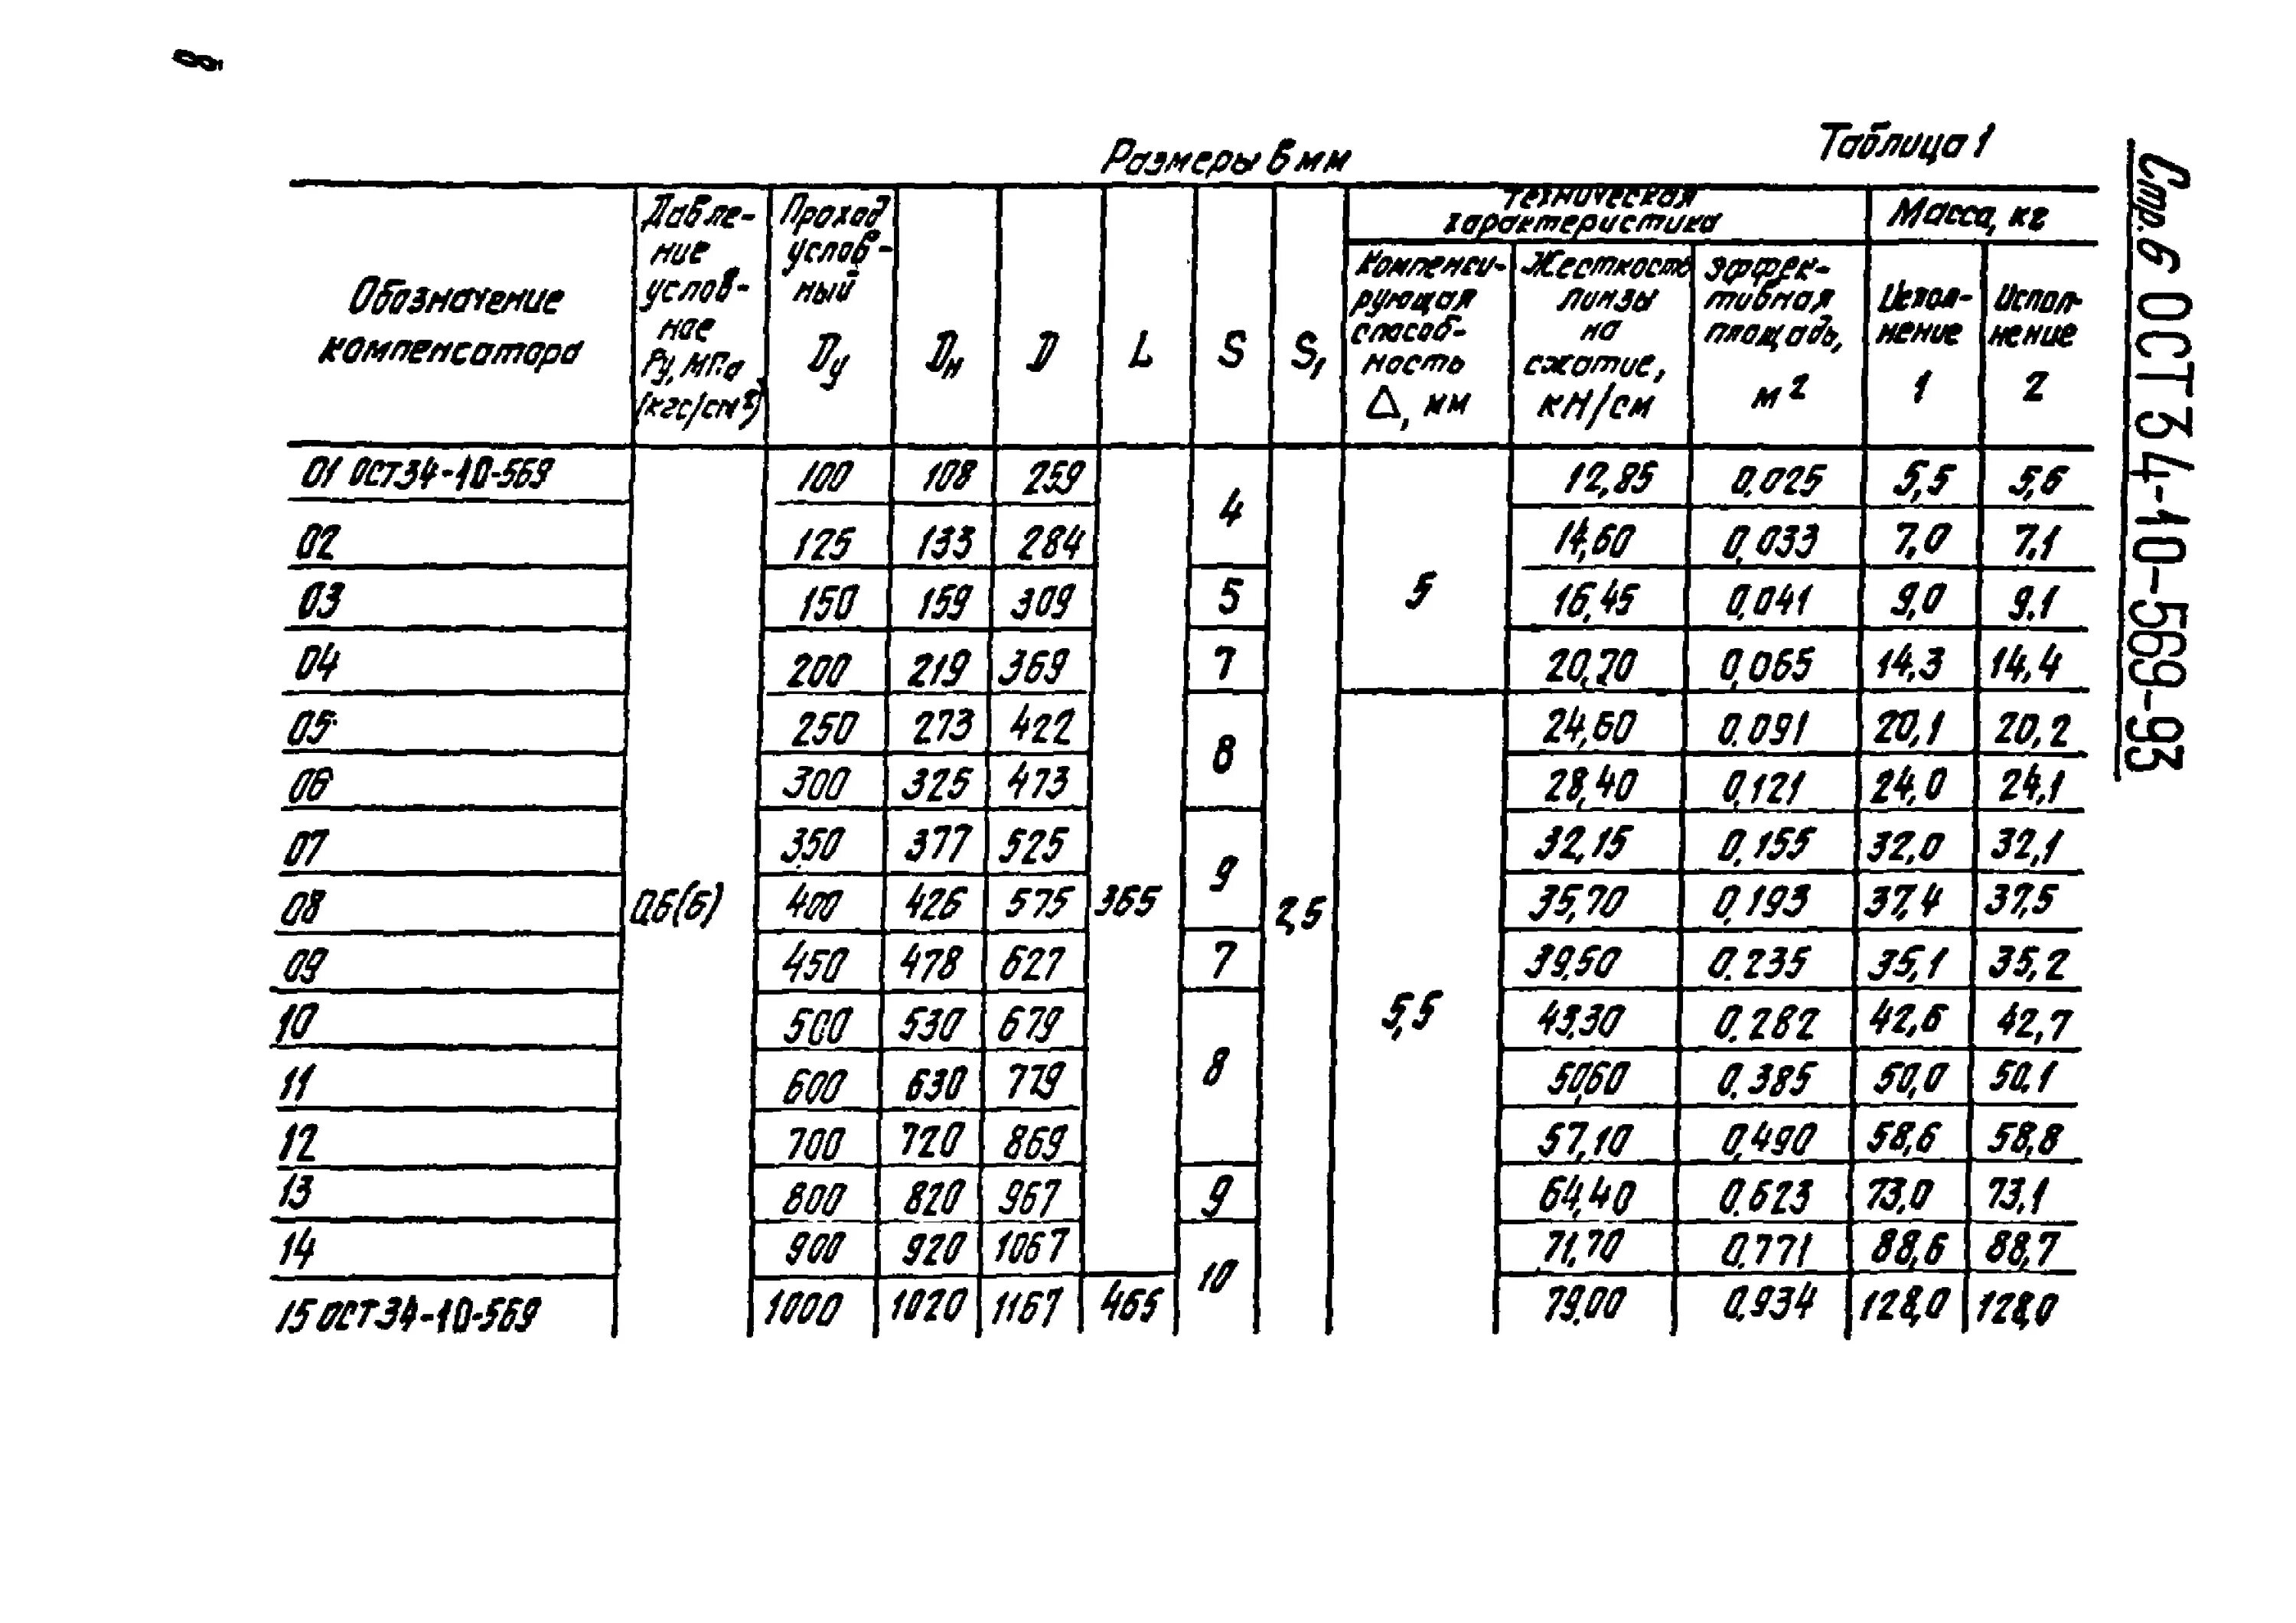 8
Таблица 1
Размеры в мм
Стр.6 ОСТ 34-10-569-93
Обозначение
компенсатора
Давле-
ние
услов-
ное
Ру, МПа
(кгс/см²)
Проход
услов-
ный
Dу
Dн
D
L
S
S₁
Техническая
характеристика
Компенси-
рующая
способ-
ность
Δ, мм
Жесткость
линзы
на
сжатие,
кН/см
Эффек-
тивная
площадь,
м²
Масса, кг
Испол-
нение
1
Испол-
нение
2
01 ОСТ34-10-569 100 108 259 4 12,85 0,025 5,5 5,6
02 125 133 284 14,60 0,033 7,0 7,1
03 150 159 309 5 5 16,45 0,041 9,0 9,1
04 200 219 369 7 20,70 0,065 14,3 14,4
05 250 273 422 8 24,60 0.091 20,1 20,2
06 300 325 473 28,40 0,121 24,0 24,1
07 350 377 525 9 32,15 0,155 32,0 32,1
08 0,6(6) 400 426 575 365 2,5 35,70 0,193 37,4 37,5
09 450 478 627 7 39,50 0.235 35,1 35,2
10 500 530 679 8 5,5 43,30 0.282 42,6 42,7
11 600 630 779 50,60 0.385 50,0 50,1
12 700 720 869 57,10 0,490 58,6 58,8
13 800 820 967 9 64,40 0.623 73,0 73,1
14 900 920 1067 10 71,70 0.771 88,6 88,7
15 ОСТ34-10-569 1000 1020 1167 465 79,00 0.934 128,0 128,0